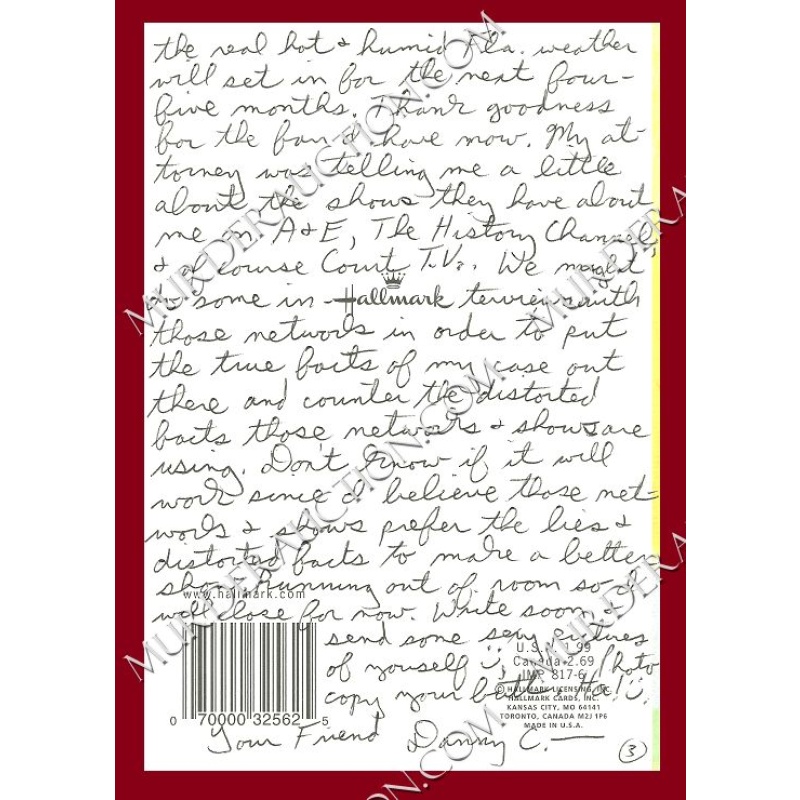 the real hot & humid Ala. weather
will set in for the next four-
five months. Thank goodness
for the fan I have now. My at-
torney was telling me a little
about the shows they have about
me on A+E, The History Channel
& of course Court T.V. We might
do some in Hallmark with
those networks in order to put
the true facts of my case out
there and counter the distorted
facts those networks & shows are
using. Don't know if it will
work since I believe those net-
works & shows prefer the lies &
distorted facts to make a better
show. Running out of room so I
www.hallmark.com
will close for now. Write soon &
send some sexy pictures
of yourself Photo
copy your
U.S.A. 1.99
Canada 2.69
IMP 817-6
© HALLMARK LICENSING, INC.
HALLMARK CARDS, INC.
KANSAS CITY, MO 64141
TORONTO, CANADA M2J 1P6
MADE IN U.S.A.
0 70000 32562 5
Your Friend Danny C.
3
MURDERAUCTION.COM